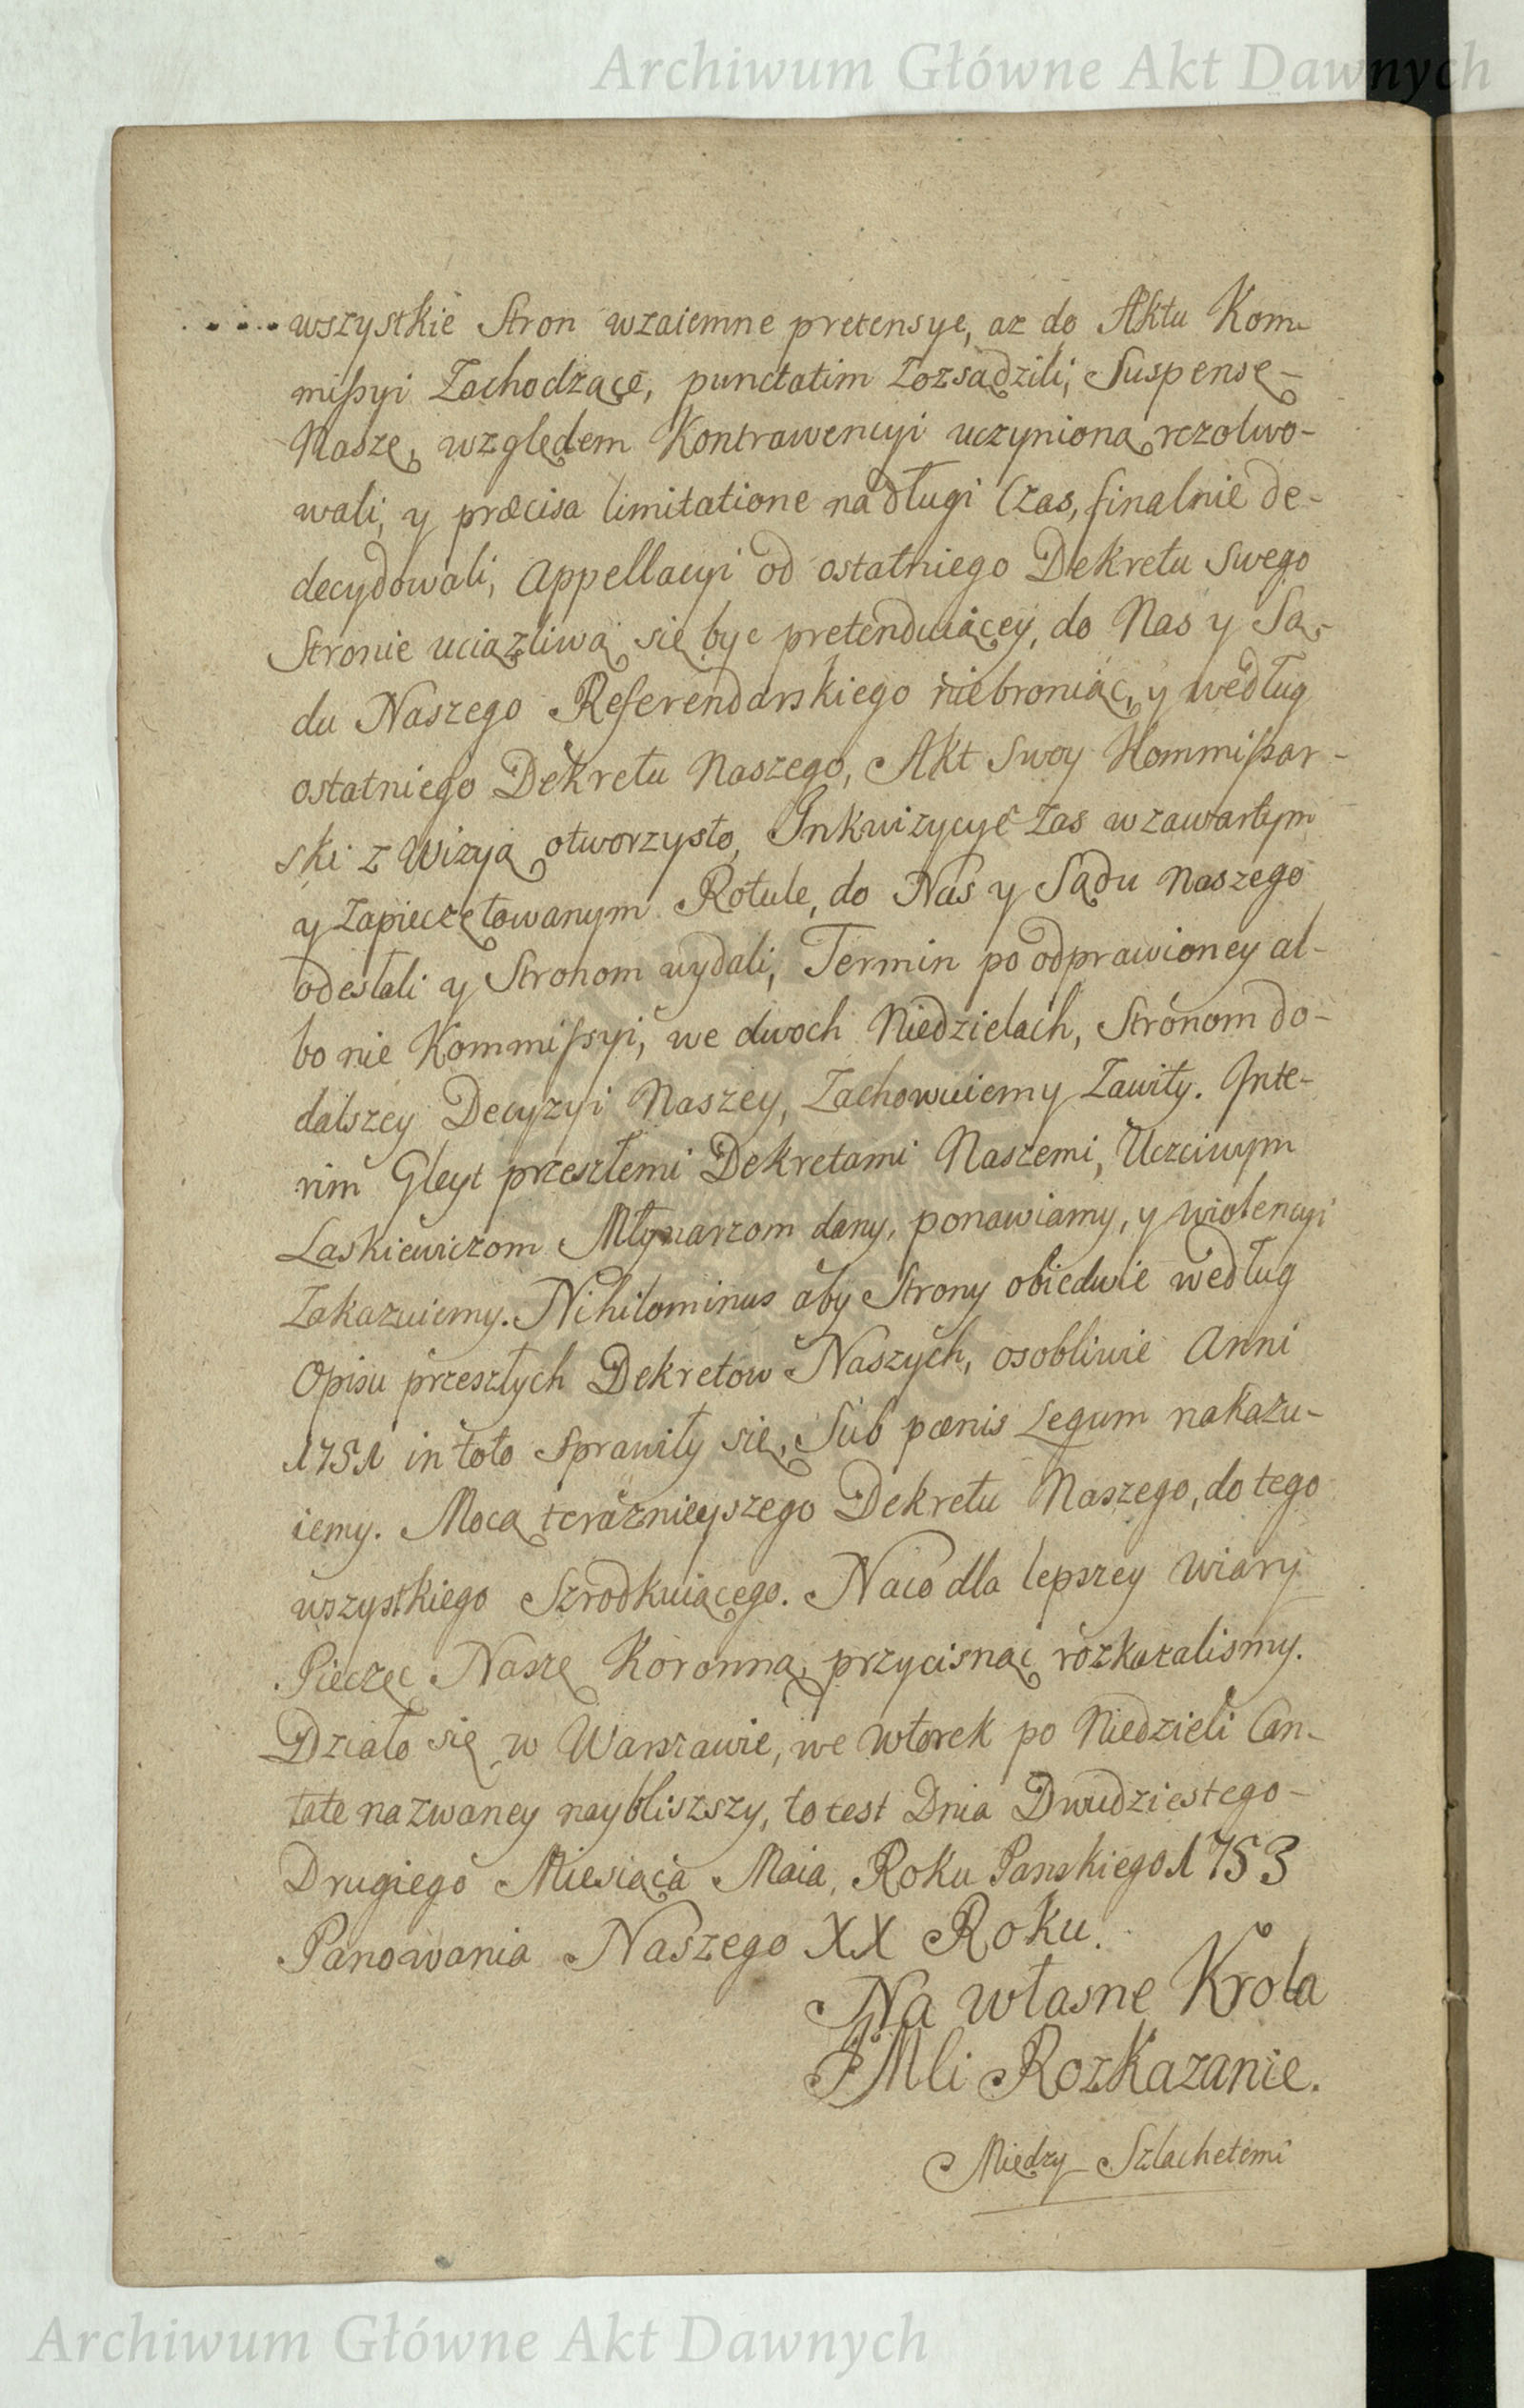 Archiwum Główne Akt Dawnych
wszystkie Stron wzaiemne pretensye, az do Aktu Kom-
mißyi Zachodzące, punctatim rozsądzili, Suspensę-
Naszę, względem Kontrawencyi uczynioną rezolwo-
wali, y præcisa limitatione na długi Czas, finalnie de-
decydowali, Appellacyi od ostatniego Dekretu Swego
Stronie uciążliwą się byc pretenduiącey, do Nas y Są-
du Naszego Referendarskiego niebroniąc, y według
ostatniego Dekretu Naszego, Akt Swoy Kommißar-
ski z Wizyą otworzysto, Inkwizycye zas w zawartym
y Zapieczętowanym Rotule, do Nas y Sądu Naszego
odesłali y Stronom wydali, Termin po odprawioney al-
bo nie Kommißyi, we dwoch Niedzielach, Stronom do-
dalszey Decyzyi Naszey, Zachowuiemy Zawity. Inte-
rim Gleyt przeszłemi Dekretami Naszemi, Uczciwym
Laskiewiczom Młynarzom dany, ponawiamy, y wiolencyi
Zakazuiemy. Nihilominus aby Strony obiedwie według
Opisu przeszłych Dekretow Naszych, osobliwie Anni
1751 in toto Sprawiły się, Sub pœnis Legum nakazu-
iemy. Mocą teraznieyszego Dekretu Naszego, do tego
wszystkiego Szrodkuiącego. Naco dla lepszey Wiary
Pieczęc Naszę Koronną, przycisnąc rozkazalismy.
Działo się w Warszawie, we Wtorek po Niedzieli Can-
tate nazwaney naybliszszy, to iest Dnia Dwudziestego-
Drugiego Miesiąca Maia, Roku Panskiego 1753
Panowania Naszego XX Roku.
Na własne Krola
JMci Rozkazanie.
Między Szlachetemi
Archiwum Główne Akt Dawnych